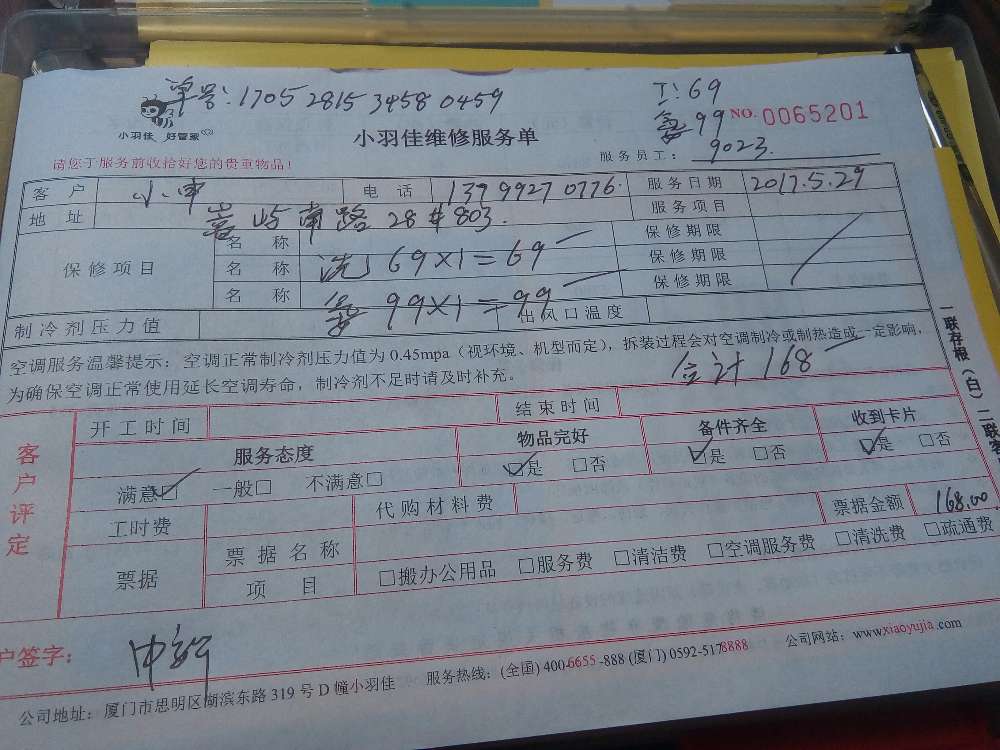 单号:1705 2815 3458 0459
工:69
NO. 0065201
99
小羽佳 好管家
小羽佳维修服务单
服务员工: 9023
请您于服务前收拾好您的贵重物品!
客户 小申 电话 13799270776 服务日期 2017.5.29
地址 嵩屿南路28#803 服务项目
保修项目 名称 保修期限
名称 洗 69×1=69 保修期限
名称 99×1=99 保修期限
制冷剂压力值 出风口温度
空调服务温馨提示:空调正常制冷剂压力值为0.45mpa(视环境、机型而定),拆装过程会对空调制冷或制热造成一定影响,
为确保空调正常使用延长空调寿命,制冷剂不足时请及时补充。
合计168
一联存根(白)二联客
客户评定
开工时间 结束时间
服务态度 物品完好 备件齐全 收到卡片
满意□ 一般□ 不满意□ □是 □否 □是 □否 □是 □否
工时费 代购材料费 票据金额 168.00
票据 票据名称
项目 □搬办公用品 □服务费 □清洁费 □空调服务费 □清洗费 □疏通费
户签字:
公司地址:厦门市思明区湖滨东路319号D幢小羽佳 服务热线:(全国)400-6655-888(厦门)0592-5178888 公司网站:www.xiaoyujia.com